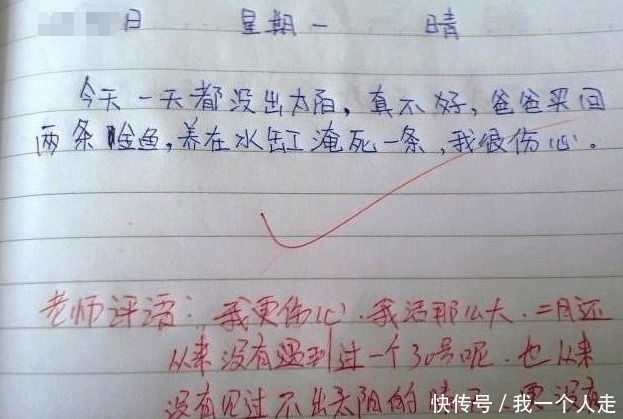 日 星期一 晴
今天一天都没出太阳，真不好，爸爸买回
两条金鱼，养在水缸淹死一条，我很伤心。
老师评语：我更伤心.我活那么大.二月还
从来没有遇到过一个30号呢.也从来
没有见过不出太阳的晴
快传号/我一个人走